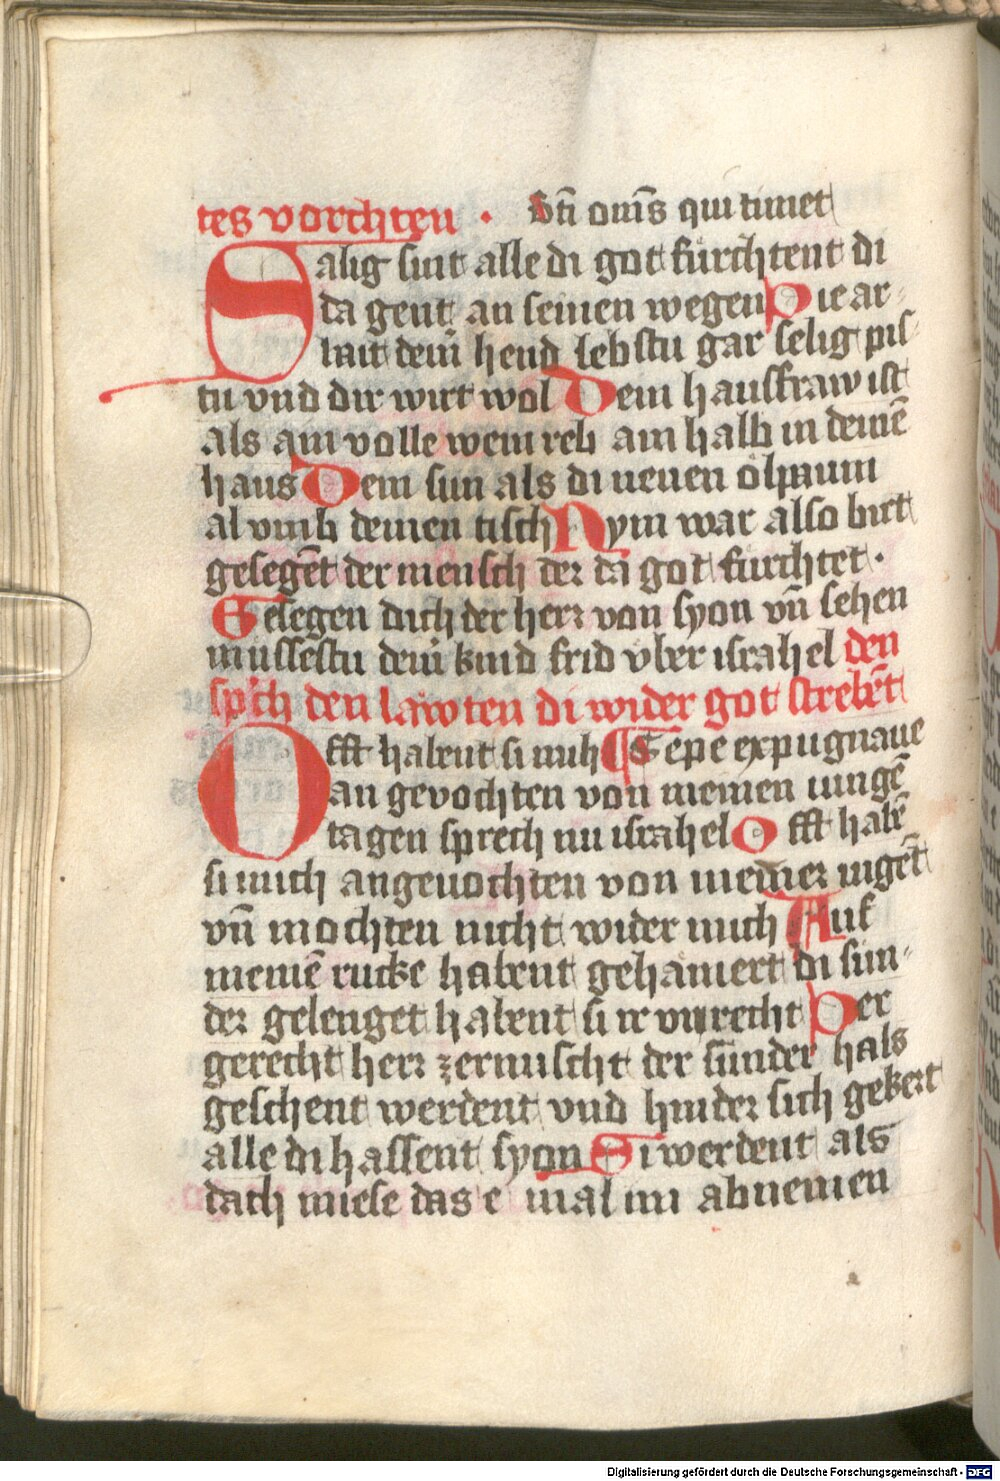 tes vorchten · Bti om̄s qui timēt
Salig sint alle di got fürchtent di
da gent an seinen wegen Die ar-
bait deiner hend lebstu gar selig pis-
tu vnd dir wirt wol Dein hausfraw ist
als ain volle wein reb ain halb in deinē
haus Dein sun als di neuen ölpaum
al vmb deinen tisch Nym war also birt
gesegēt der mensch der da got fürchtet ·
Gesegen dich der herr von syon vn̄ sehen
müssestu deinr kind frid vber israhel den
spͬch den läwten di wider got strebēt
Offt habent si mich Sepe expugnaue
angevochten von meinen iungē
tagen sprech nu israhel Offt habē
si mich angeuochten von meiner iugēt
vn̄ mochten nicht wider mich Auf
meinē rucke habent gehamert di sün-
der gelenget habent si ir vnrecht Der
gerecht herr zermischt der sünder hals
geschent werdent vnd hinder sich gekert
alle di hassent syon Si werdent als
dach miese das e mal im abnemen
Digitalisierung gefördert durch die Deutsche Forschungsgemeinschaft - DFG